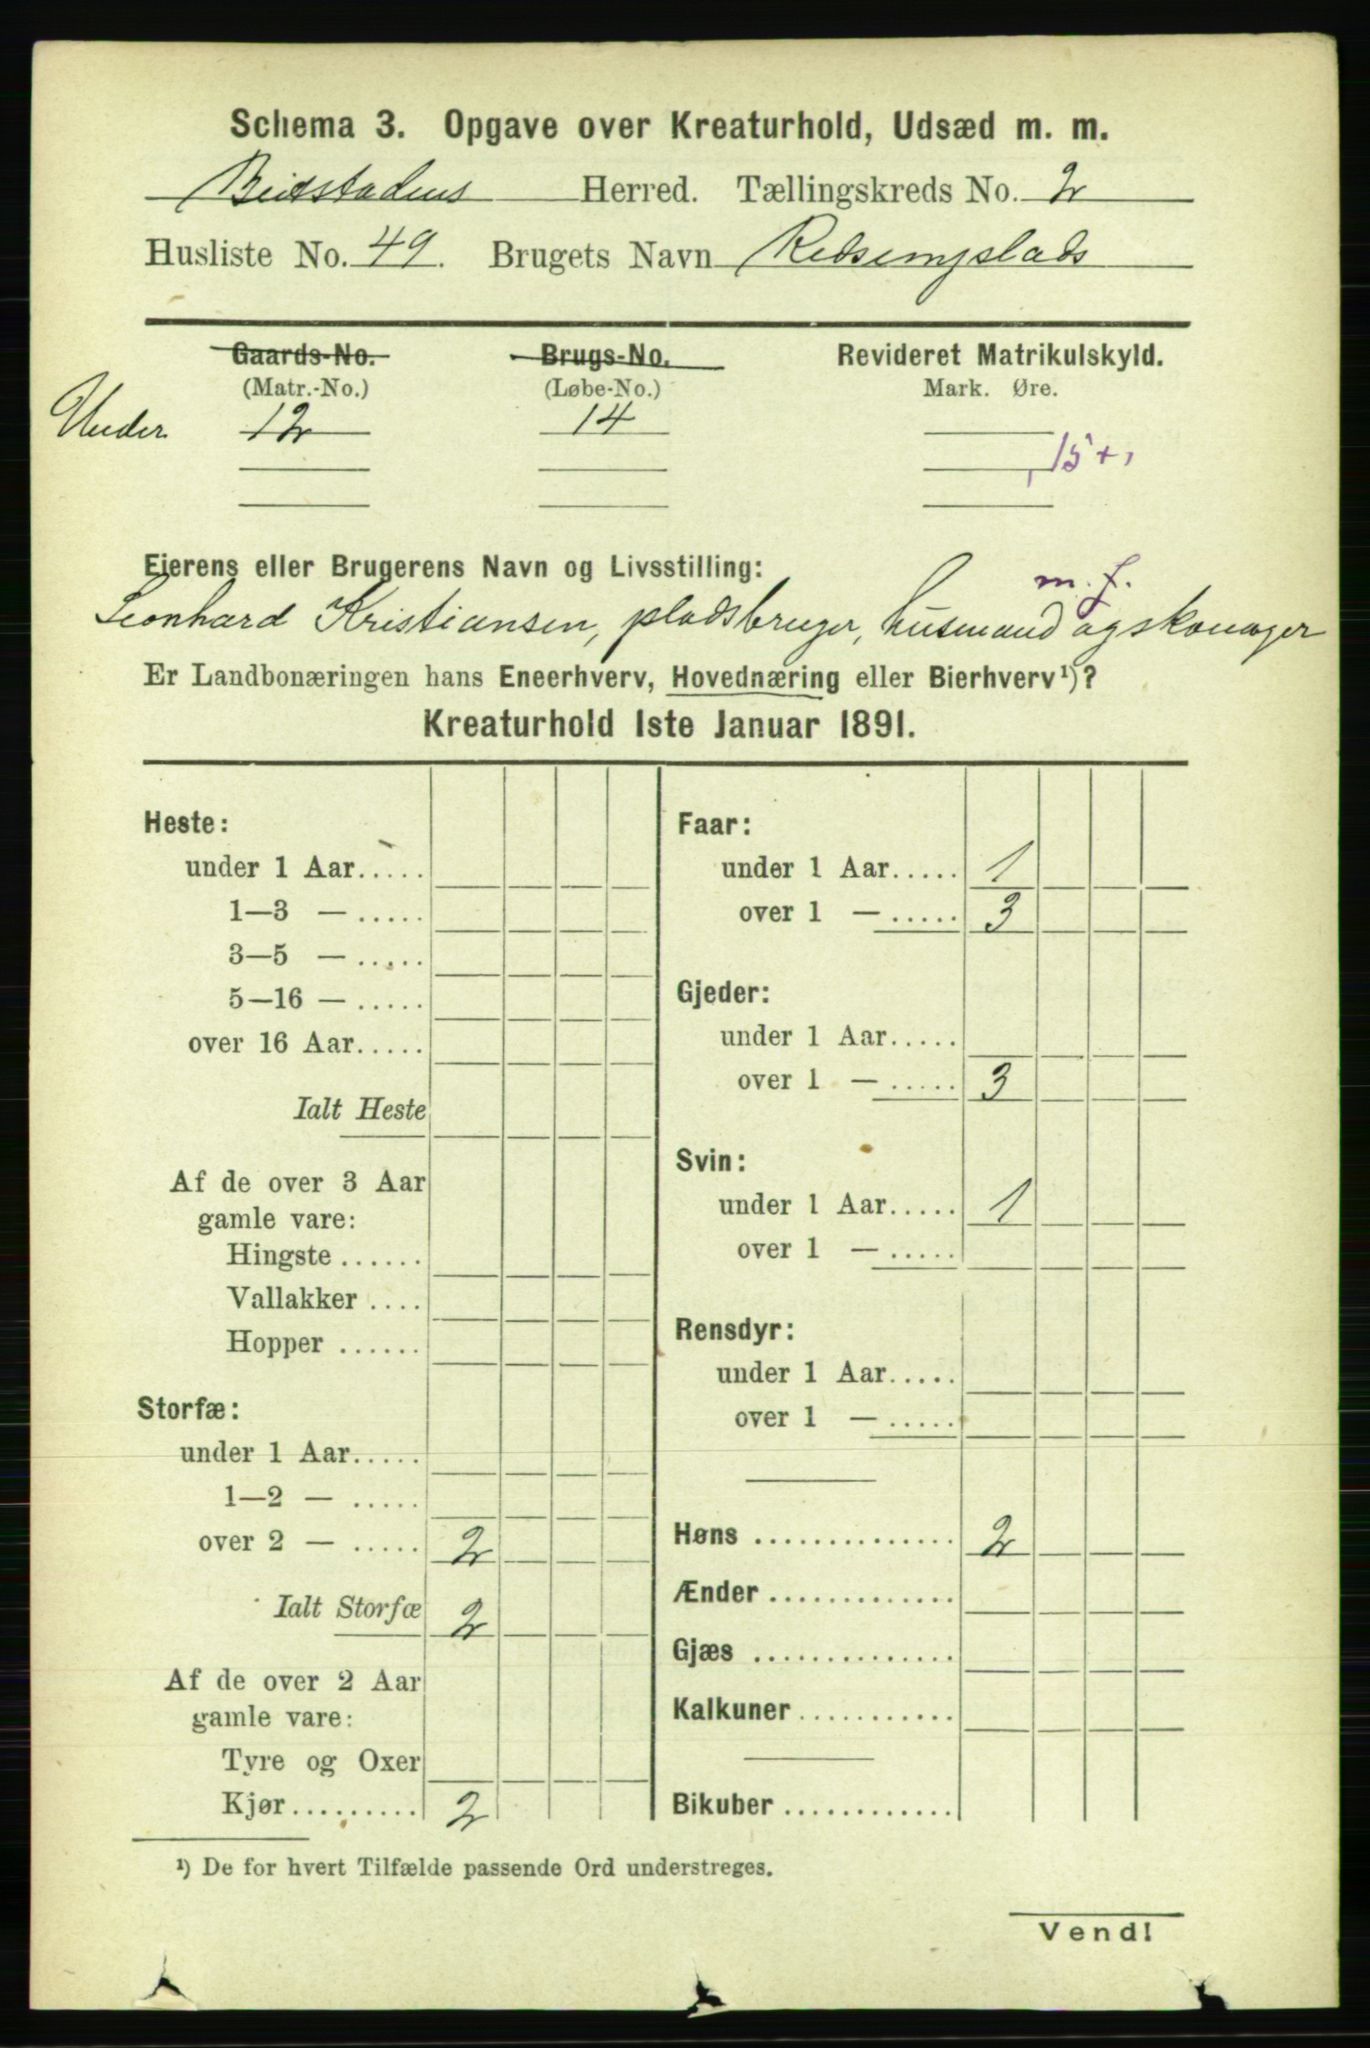 Schema 3. Opgave over Kreaturhold, Udsæd m. m.
Beitstadens Herred. Tællingskreds No. 2
Husliste No. 49. Brugets Navn
Gaards-No. Brugs-No. Revideret Matrikulskyld.
(Matr.-No.) (Løbe-No.) Mark. Øre.
Under 12 14
,15+,
Eierens eller Brugerens Navn og Livsstilling:
m. f.
Leonhard Kristiansen, pladsbruger, husmand og skomager
Er Landbonæringen hans Eneerhverv, Hovednæring eller Bierhverv¹)?
Kreaturhold 1ste Januar 1891.
Heste:
under 1 Aar.....
1—3 — .....
3—5 — .....
5—16 — .....
over 16 Aar.....
Ialt Heste
Af de over 3 Aar
gamle vare:
Hingste ......
Vallakker ....
Hopper ......
Storfæ:
under 1 Aar.....
1—2 — .....
over 2 — ..... 2
Ialt Storfæ 2
Af de over 2 Aar
gamle vare:
Tyre og Oxer
Kjør.......... 2
Faar:
under 1 Aar..... 1
over 1 — ..... 3
Gjeder:
under 1 Aar.....
over 1 — ..... 3
Svin:
under 1 Aar..... 1
over 1 — .....
Rensdyr:
under 1 Aar.....
over 1 — .....
Høns .............. 2
Ænder .............
Gjæs ..............
Kalkuner...........
Bikuber ............
¹) De for hvert Tilfælde passende Ord understreges.
Vend!